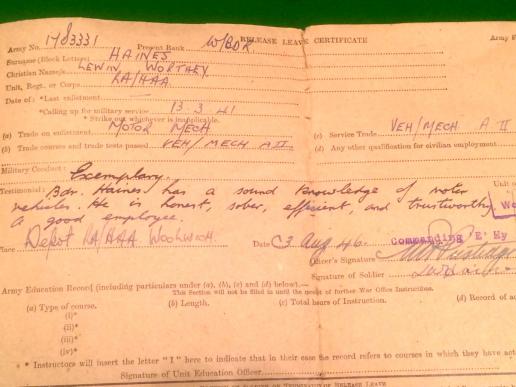 RELEASE LEAVE CERTIFICATE
Army F
Army No. 1783331 Present Rank W/BDR
Surname (Block Letters) HAINES
Christian Name/s LEWIN WORTHEY
Unit, Regt. or Corps RA/HAA
Date of: *Last enlistment
*Calling up for military service 13.3.41
* Strike out whichever is inapplicable.
(a) Trade on enlistment MOTOR MECH (c) Service Trade VEH/MECH A II
(b) Trade courses and trade tests passed VEH/MECH A II. (d) Any other qualification for civilian employment
Military Conduct: Exemplary.
Testimonial: Bdr. Haines has a sound knowledge of motor
vehicles. He is honest, sober, efficient, and trustworthy
a good employee.
Place Depot RA/HAA. Woolwich. Date 3 Aug 46. Commanding 'E'
Officer's Signature
Signature of Soldier
Army Education Record (including particulars under (a), (b), (c) and (d) below).—
This Section will not be filled in until the receipt of further War Office Instruction.
(a) Type of course. (b) Length. (c) Total hours of Instruction. (d) Record of
(i)*
(ii)*
(iii)*
(iv)*
* Instructors will insert the letter "I" here to indicate that in their case the record refers to courses in which they have act
Signature of Unit Education Officer